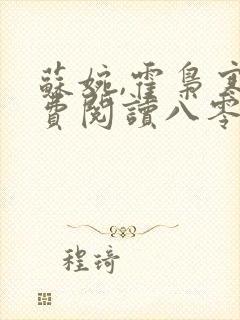 蘇婉,霍梟寒
費閱讀八零
程琦